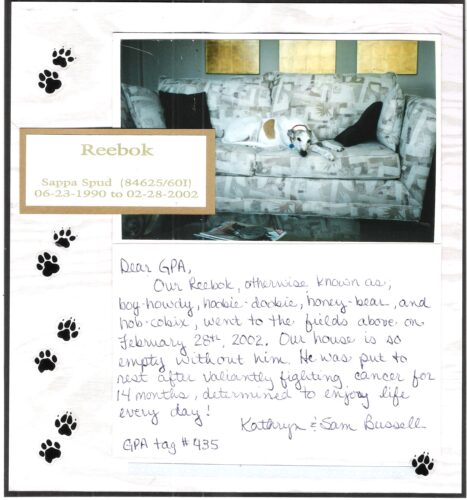 Reebok
Sappa Spud (84625/60I)
06-23-1990 to 02-28-2002
Dear GPA,
Our Reebok, otherwise known as,
boy-howdy, hoobie-doobie, honey-bear, and
hob-cobix, went to the fields above on
February 28th, 2002. Our house is so
empty without him. He was put to
rest after valiantly fighting cancer for
14 months, determined to enjoy life
every day!
Kathryn & Sam Bussell
GPA tag # 435